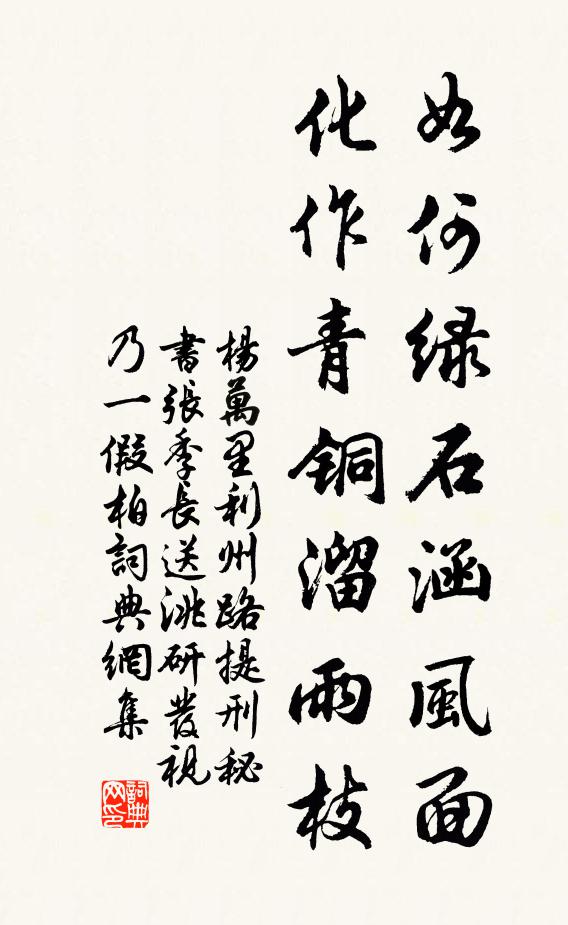 如何緑石涵風面
化作青铜溜雨枝
楊萬里利州路提刑秘
書張季長送洮研發視
乃一假柏詞典網集
詞典
网印